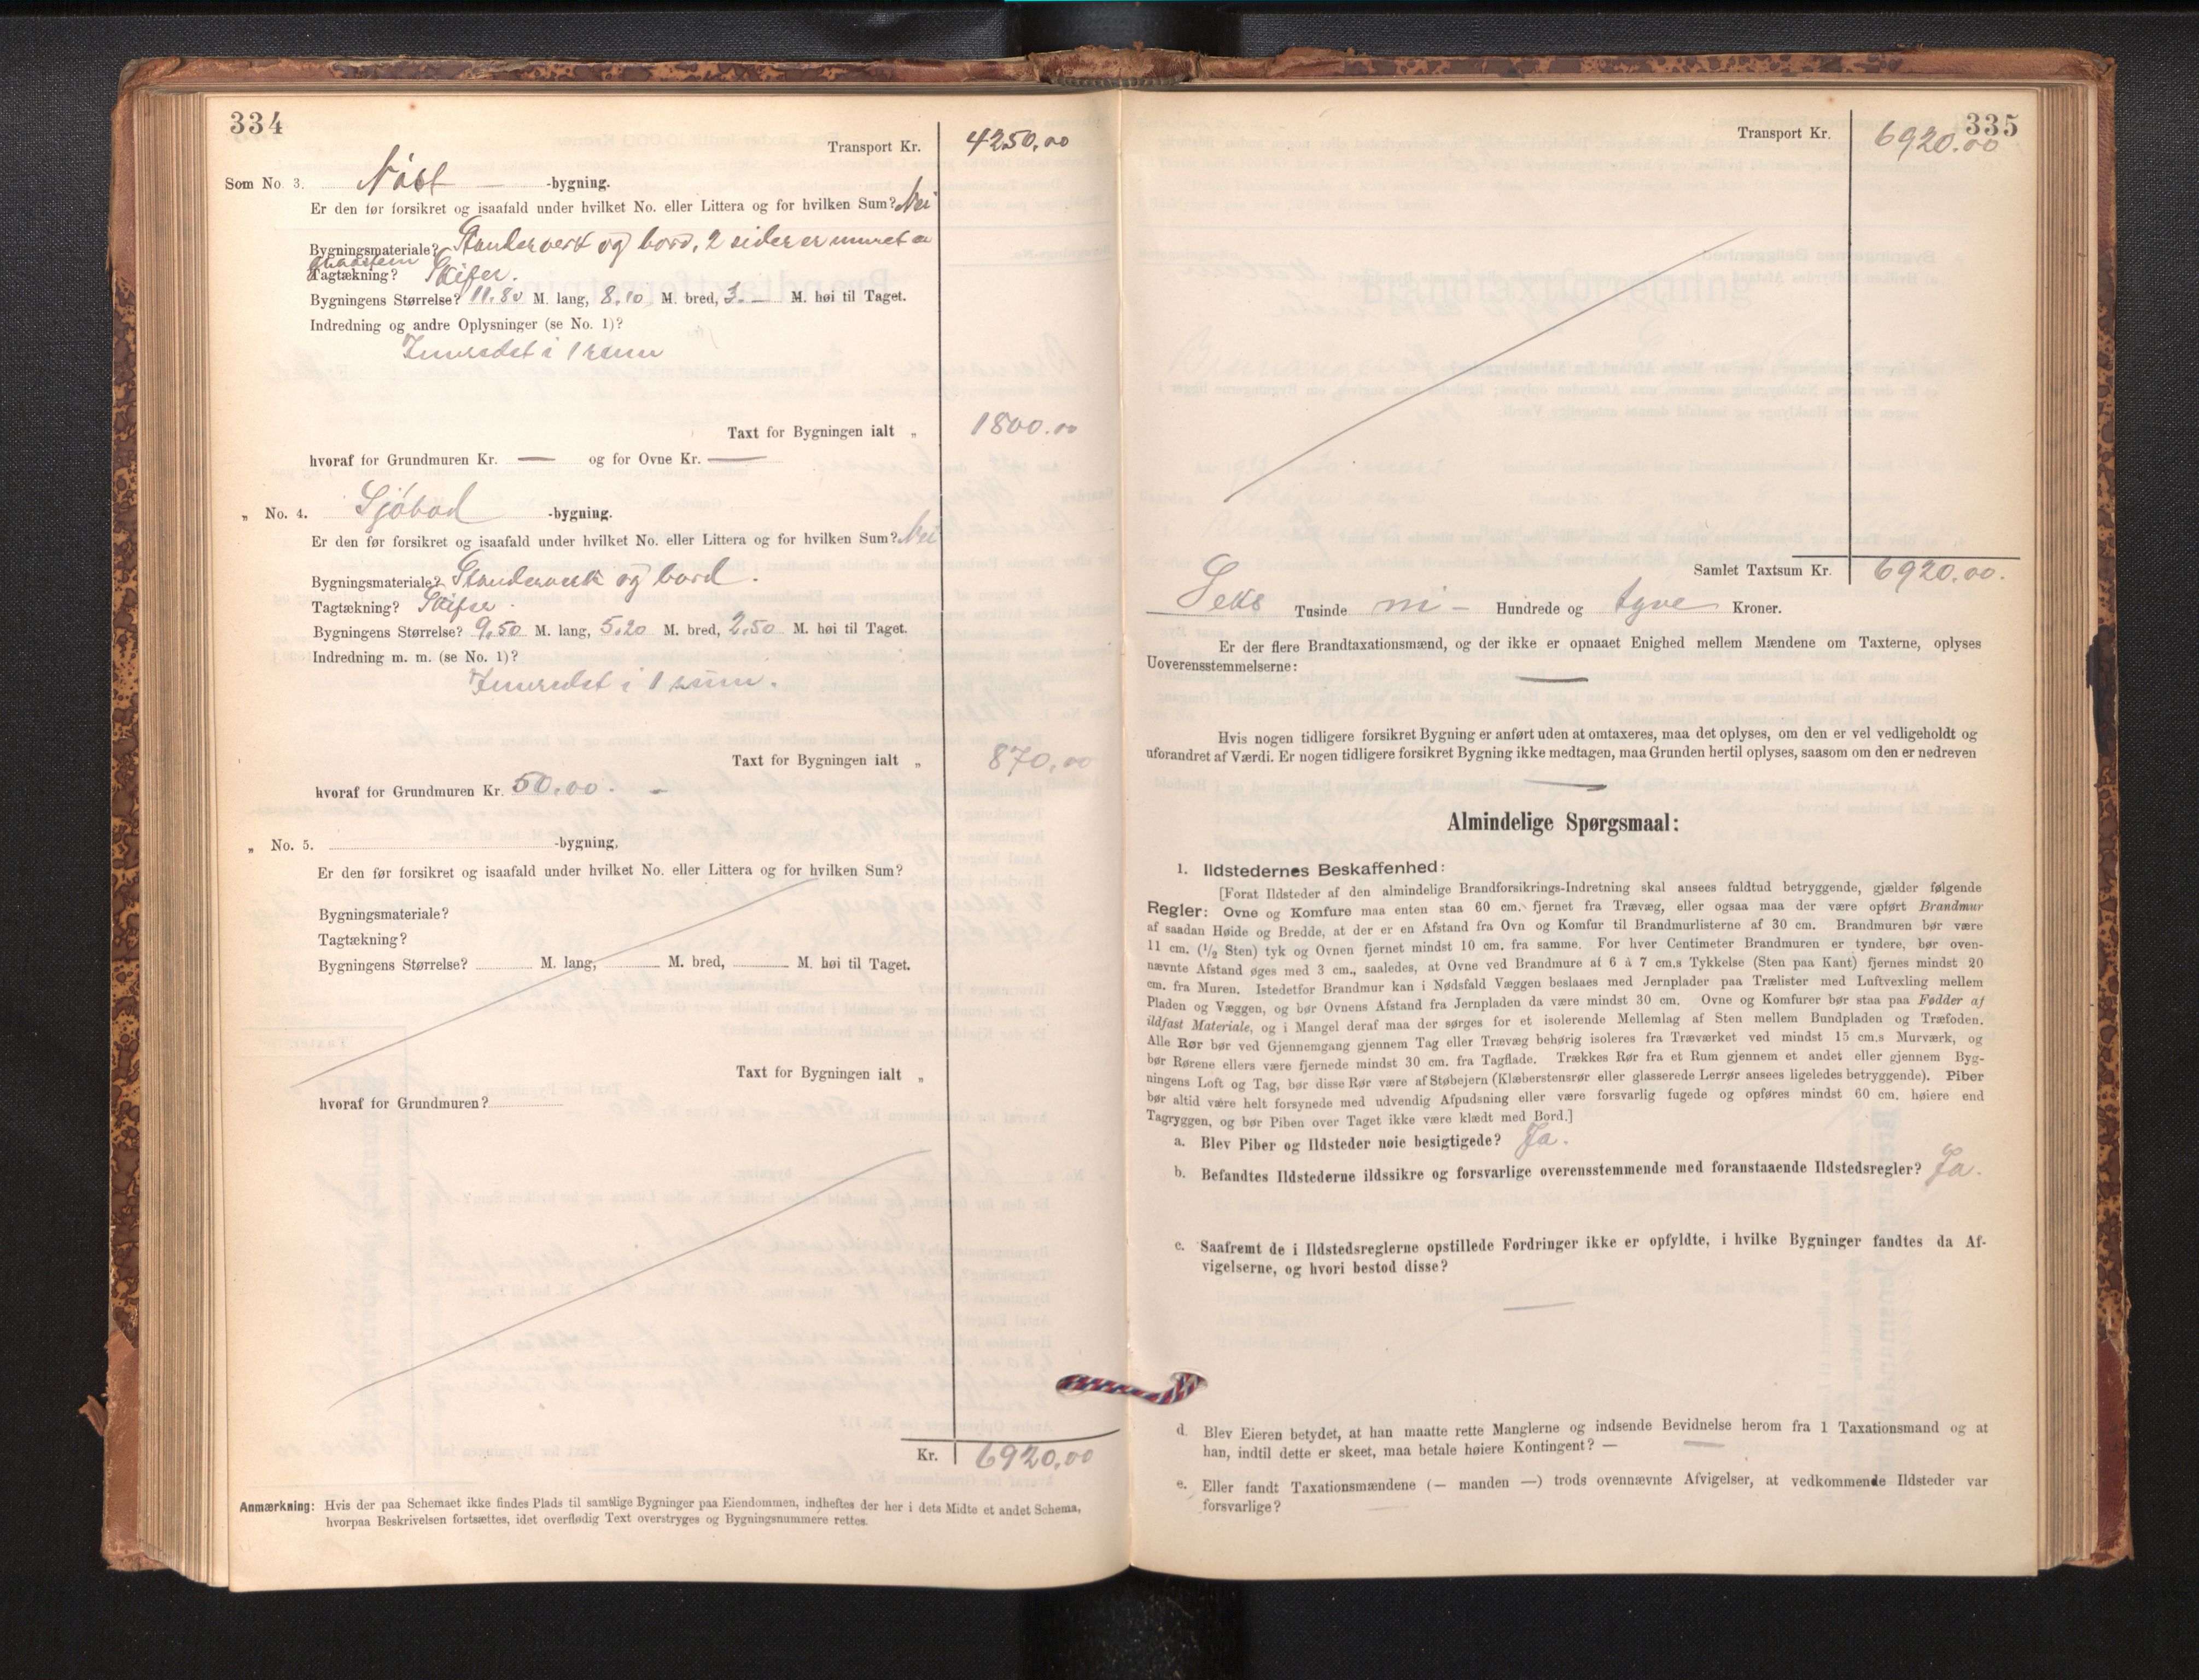 334
Transport Kr. 4250.00
Som No. 3. Nöst — -bygning.
Er den før forsikret og isaafald under hvilket No. eller Littera og for hvilken Sum? Nei
Bygningsmateriale? Standerverk og bord, 2 sider er muret a
Tagtækning? Skifer.
Bygningens Størrelse? 11.80 M. lang, 8.10 M. bred, 3.— M. høi til Taget.
Indredning og andre Oplysninger (se No. 1)?
Innredet i 1 rum
Taxt for Bygningen ialt „ 1800.00
hvoraf for Grundmuren Kr. — og for Ovne Kr. —
„ No. 4. Sjöbod -bygning.
Er den før forsikret og isaafald under hvilket No. eller Littera og for hvilken Sum? Nei
Bygningsmateriale? Standerverk og bord.
Tagtækning? Skifer.
Bygningens Størrelse? 9.50 M. lang, 5.20 M. bred, 2.50 M. høi til Taget.
Indredning m. m. (se No. 1)?
Innredet i 1 rum.
Taxt for Bygningen ialt „ 870.00
hvoraf for Grundmuren Kr. 50.00. —
„ No. 5. -bygning,
Er den før forsikret og isaafald under hvilket No. eller Littera og for hvilken Sum?
Bygningsmateriale?
Tagtækning?
Bygningens Størrelse? M. lang, M. bred, M. høi til Taget.
Taxt for Bygningen ialt „
hvoraf for Grundmuren?
Kr. 6920,00
Anmærkning: Hvis der paa Schemaet ikke findes Plads til samtlige Bygninger paa Eiendommen, indheftes der her i dets Midte et andet Schema,
hvorpaa Beskrivelsen fortsættes, idet overflødig Text overstryges og Bygningsnummere rettes.
335
Transport Kr. 6920.00
Samlet Taxtsum Kr. 6920.00.
Seks Tusinde ni — Hundrede og tyve Kroner.
Er der flere Brandtaxationsmænd, og der ikke er opnaaet Enighed mellem Mændene om Taxterne, oplyses
Uoverensstemmelserne: —
Hvis nogen tidligere forsikret Bygning er anført uden at omtaxeres, maa det oplyses, om den er vel vedligeholdt og
uforandret af Værdi. Er nogen tidligere forsikret Bygning ikke medtagen, maa Grunden hertil oplyses, saasom om den er nedreven
—
Almindelige Spørgsmaal:
1. Ildstedernes Beskaffenhed:
[Forat Ildsteder af den almindelige Brandforsikrings-Indretning skal ansees fuldtud betryggende, gjælder følgende
Regler: Ovne og Komfure maa enten staa 60 cm. fjernet fra Trævæg, eller ogsaa maa der være opført Brandmur
af saadan Høide og Bredde, at der er en Afstand fra Ovn og Komfur til Brandmurlisterne af 30 cm. Brandmuren bør være
11 cm. (1/2 Sten) tyk og Ovnen fjernet mindst 10 cm. fra samme. For hver Centimeter Brandmuren er tyndere, bør oven-
nævnte Afstand øges med 3 cm., saaledes, at Ovne ved Brandmure af 6 à 7 cm.s Tykkelse (Sten paa Kant) fjernes mindst 20
cm. fra Muren. Istedetfor Brandmur kan i Nødsfald Væggen beslaaes med Jernplader paa Trælister med Luftvexling mellem
Pladen og Væggen, og bør Ovnens Afstand fra Jernpladen da være mindst 30 cm. Ovne og Komfurer bør staa paa Fødder af
ildfast Materiale, og i Mangel deraf maa der sørges for et isolerende Mellemlag af Sten mellem Bundpladen og Træfoden.
Alle Rør bør ved Gjennemgang gjennem Tag eller Trævæg behørig isoleres fra Træværket ved mindst 15 cm.s Murværk, og
bør Rørene ellers være fjernede mindst 30 cm. fra Tagflade. Trækkes Rør fra et Rum gjennem et andet eller gjennem Byg-
ningens Loft og Tag, bør disse Rør være af Støbejern (Klæberstensrør eller glasserede Lerrør ansees ligeledes betryggende). Piber
bør altid være helt forsynede med udvendig Afpudsning eller være forsvarlig fugede og opføres mindst 60 cm. høiere end
Tagryggen, og bør Piben over Taget ikke være klædt med Bord.]
a. Blev Piber og Ildsteder nøie besigtigede? Ja.
b. Befandtes Ildstederne ildssikre og forsvarlige overensstemmende med foranstaaende Ildstedsregler? Ja.
c. Saafremt de i Ildstedsreglerne opstillede Fordringer ikke er opfyldte, i hvilke Bygninger fandtes da Af-
vigelserne, og hvori bestod disse?
—
d. Blev Eieren betydet, at han maatte rette Manglerne og indsende Bevidnelse herom fra 1 Taxationsmand og at
han, indtil dette er skeet, maa betale høiere Kontingent? — —
e. Eller fandt Taxationsmændene (— manden —) trods ovennævnte Afvigelser, at vedkommende Ildsteder var
forsvarlige? —